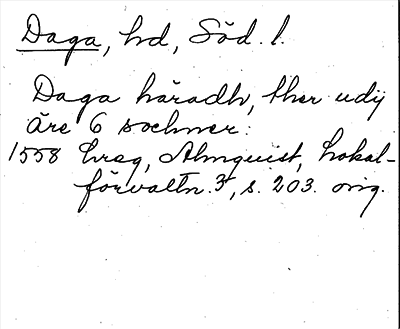 Daga, hd, Söd. l.
Daga häradh, ther udij
äre 6 sochner:
1558 hreg, Almquist, Lokal-
förvaltn. 3, s. 203. orig.